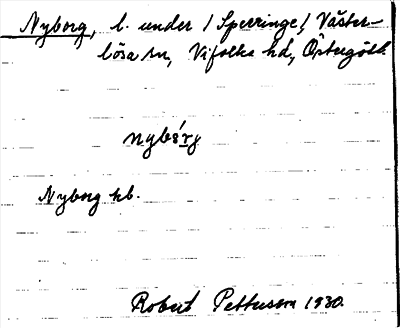 Nyborg, l. under / Sperringe /, Väster-
lösa sn, Vifolka hd, Östergötl.
nybǿry
Nyborg kb.
Robert Pettersson 1930.